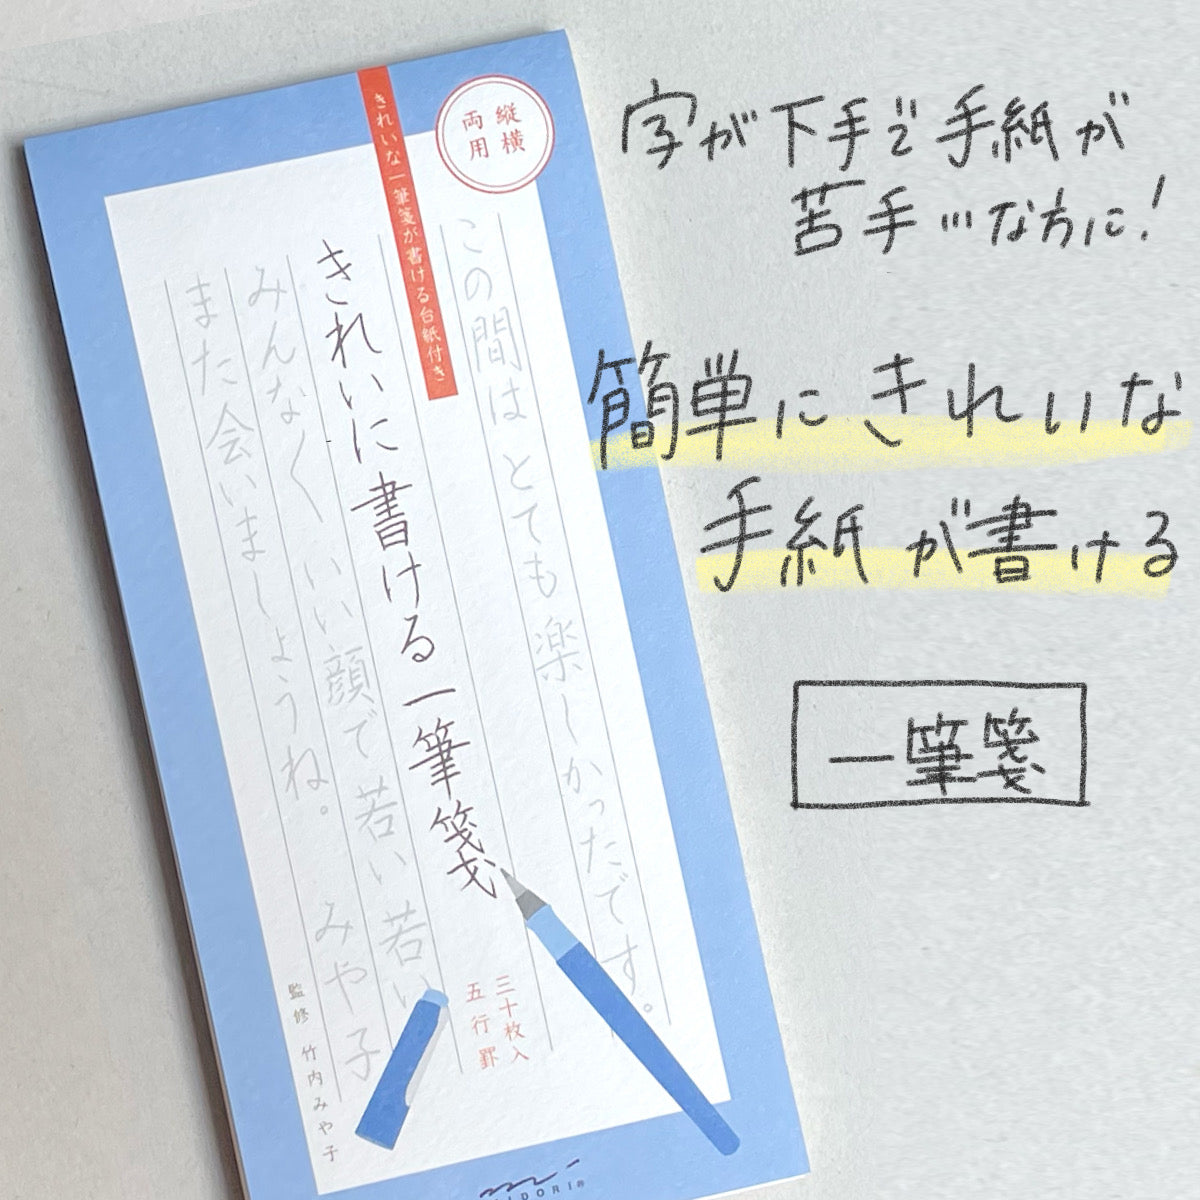 縦横
両用
きれいな一筆箋が書ける台紙付き
この間はとても楽しかったです。
きれいに書ける一筆箋
みんなくいい顔で若い若い
また会いましょうね。
みや子
三十枚入
五行罫
監修 竹内みや子
MIDORI®
字が下手で手紙が
苦手…な方に!
簡単にきれいな
手紙が書ける
一筆箋